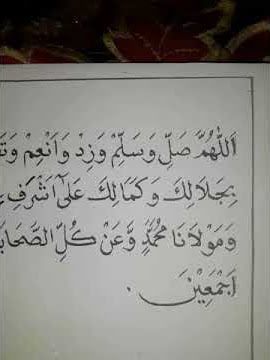 اَللّٰهُمَّ صَلِّ وَسَلِّمْ وَزِدْ وَاَنْعِمْ
بِجَلَالِكَ وَكَمَالِكَ عَلٰى اَشْرَفِ
وَمَوْلَانَا مُحَمَّدٍ وَّعَنْ كُلِّ الصَّحَابَ
اَجْمَعِيْنَ .